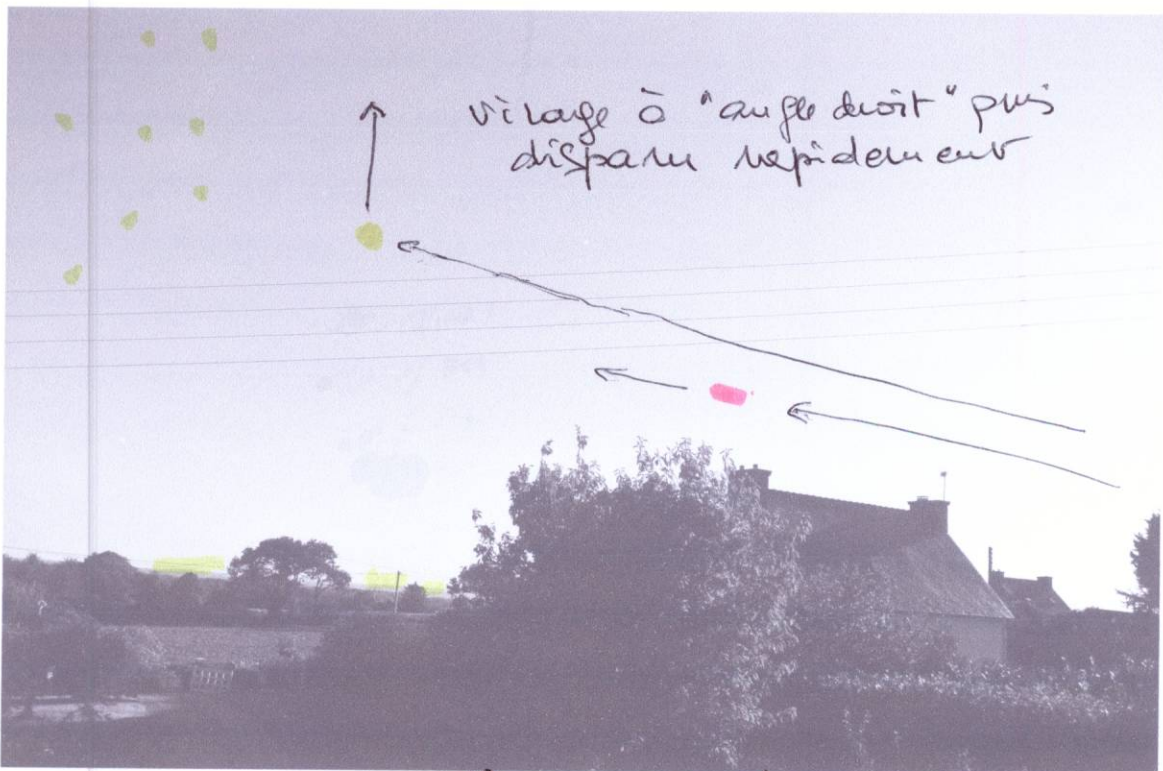 virage à "angle droit" puis
disparu rapidement